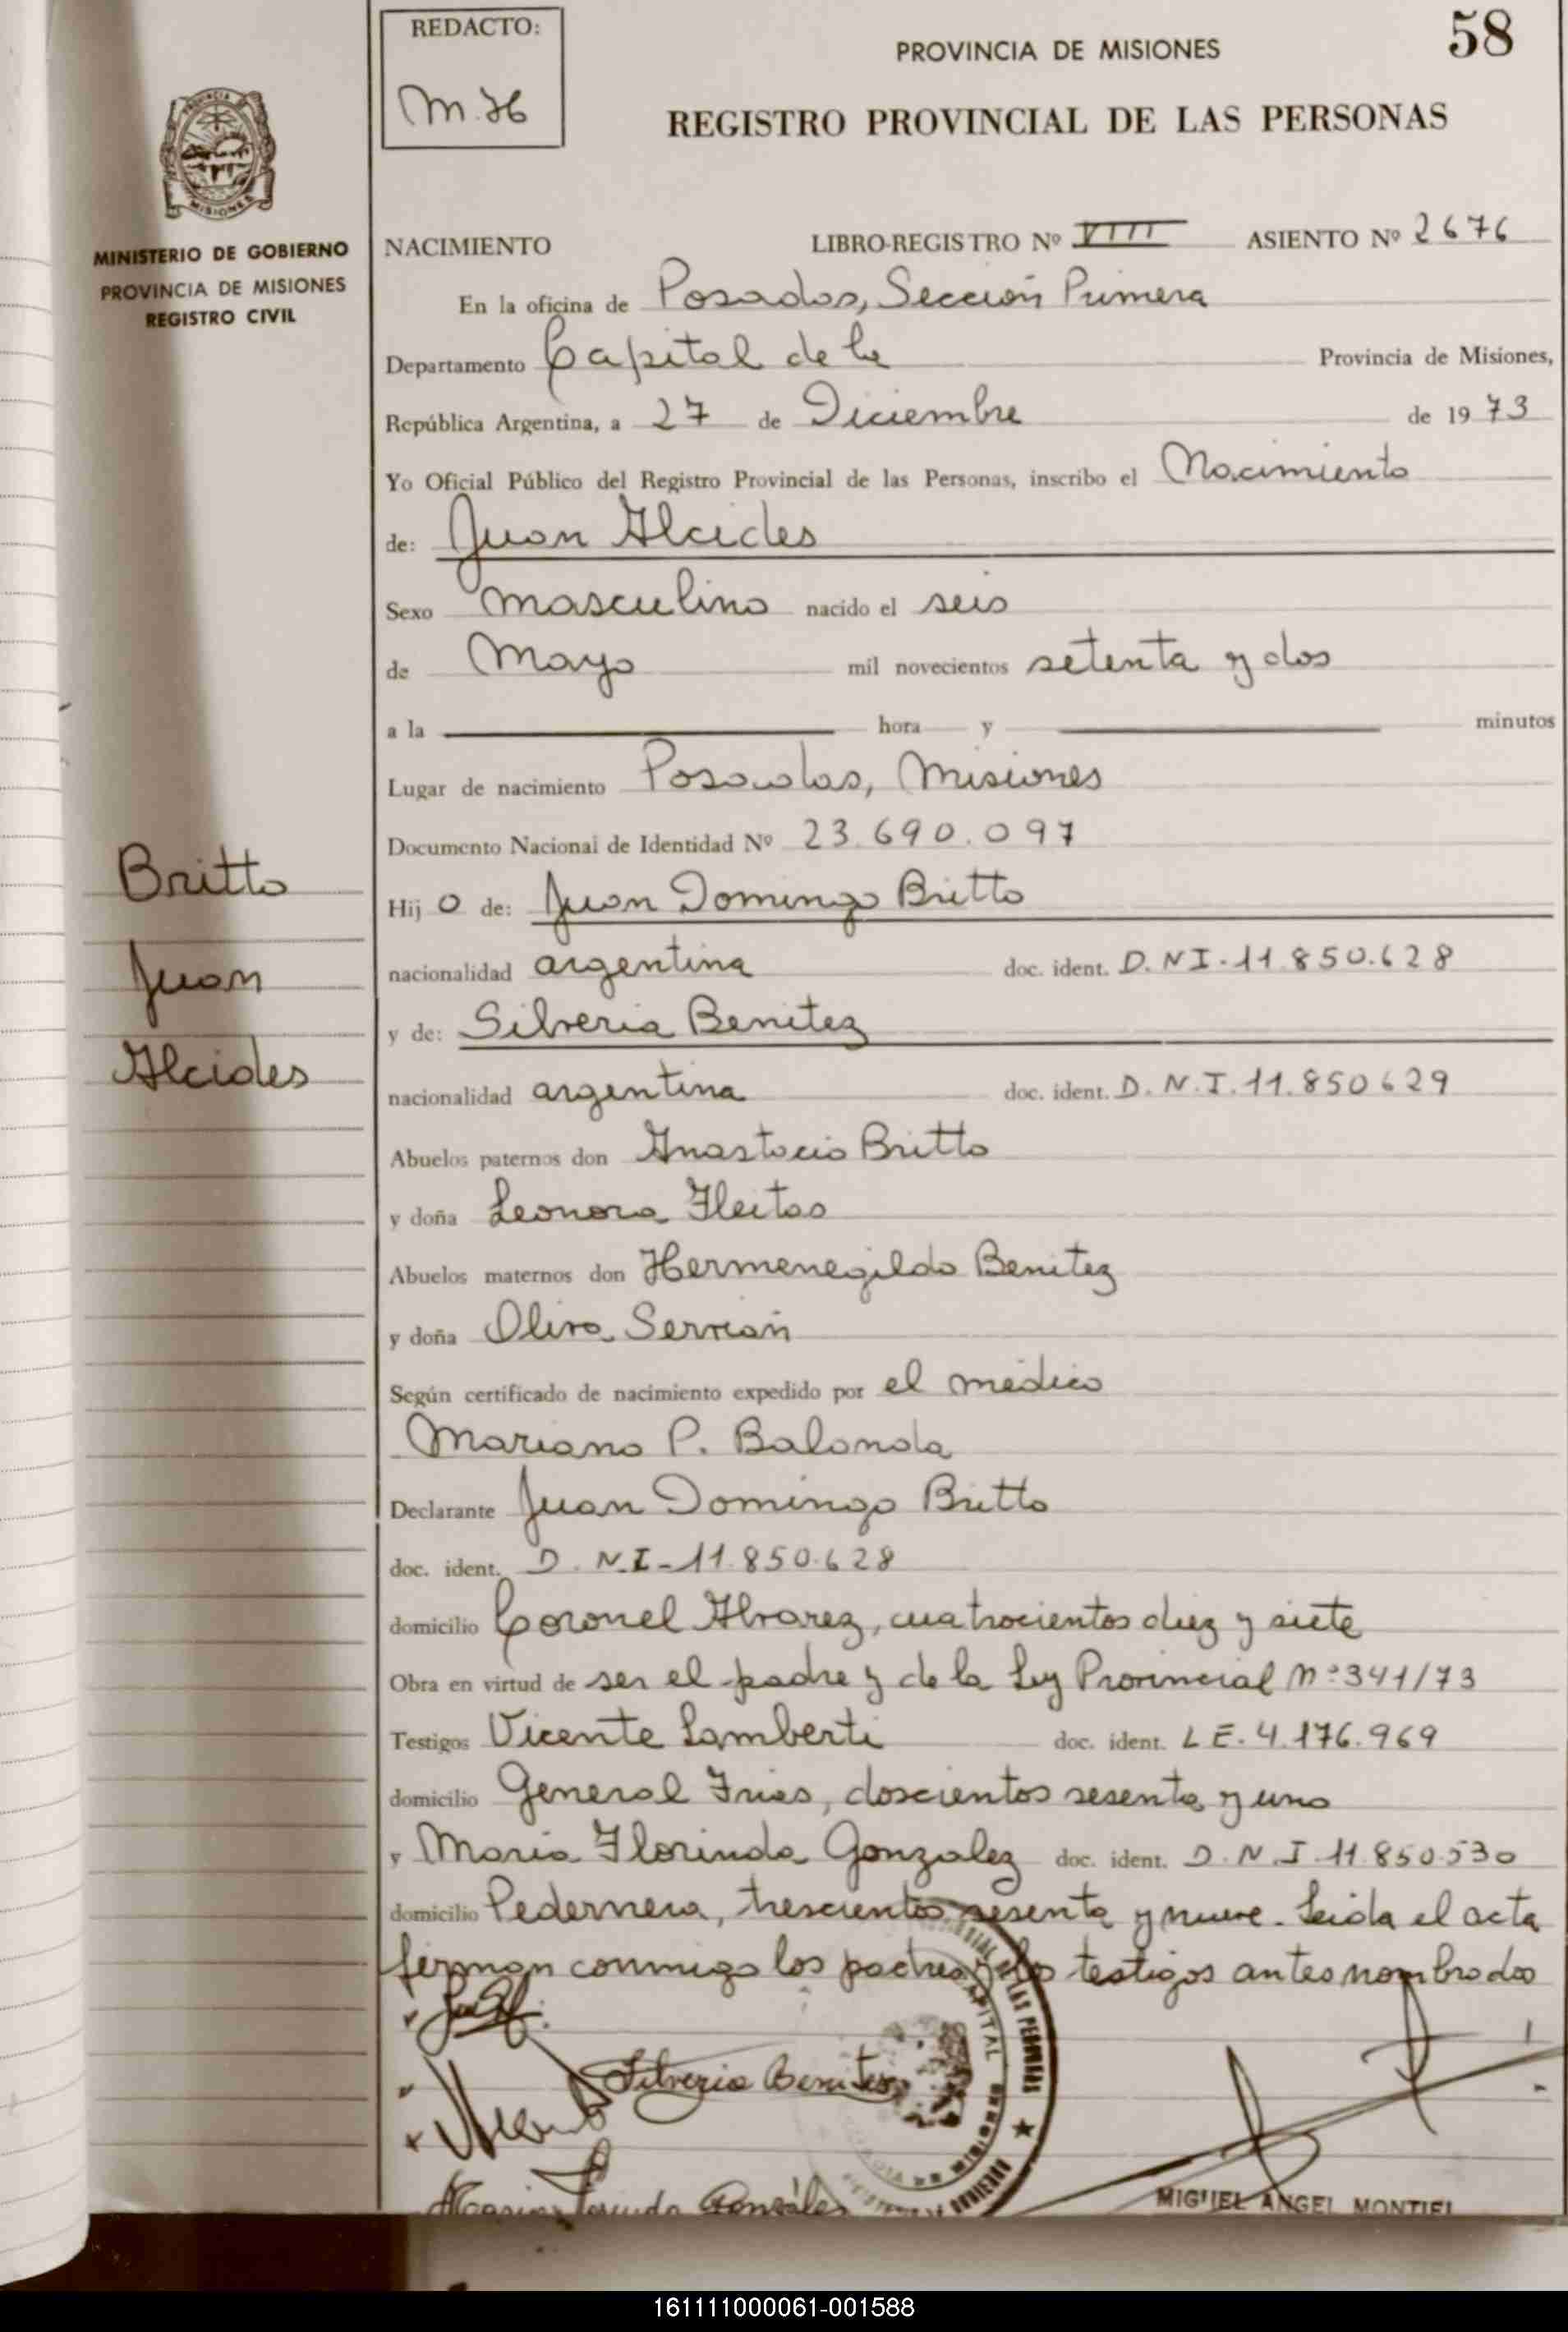 REDACTO:
M.H
58
PROVINCIA DE MISIONES
REGISTRO PROVINCIAL DE LAS PERSONAS
MISIONES
MINISTERIO DE GOBIERNO
PROVINCIA DE MISIONES
REGISTRO CIVIL
NACIMIENTO LIBRO-REGISTRO Nº VIII ASIENTO Nº 2676
En la oficina de Posadas, Sección Primera
Departamento Capital de la Provincia de Misiones,
República Argentina, a 27 de Diciembre de 1973
Yo Oficial Público del Registro Provincial de las Personas, inscribo el Nacimiento
de: Juan Alcides
Sexo masculino nacido el seis
de Mayo mil novecientos setenta y dos
a la hora y minutos
Lugar de nacimiento Posadas, Misiones
Documento Nacional de Identidad Nº 23.690.097
Britto
Juan
Alcides
Hij o de: Juan Domingo Britto
nacionalidad argentina doc. ident. D.NI-11.850.628
y de: Silveria Benitez
nacionalidad argentina doc. ident. D.N.I.11.850629
Abuelos paternos don Anastacio Britto
y doña Leonora Fleitas
Abuelos maternos don Hermenegildo Benitez
y doña Oliva Servian
Según certificado de nacimiento expedido por el médico
Mariano P. Balanda
Declarante Juan Domingo Britto
doc. ident. D.N.I-11.850.628
domicilio Coronel Alvarez, cuatrocientos diez y siete
Obra en virtud de ser el padre y de la Ley Provincial Nº341/73
Testigos Vicente Lamberti doc. ident. LE.4.176.969
domicilio General Frias, doscientos sesenta y uno
y Maria Florinda Gonzalez doc. ident. D.N.I 11.850.530
domicilio Pedernera, trescientos sesenta y nueve. Leida el acta
firman conmigo los padres y los testigos antes nombrados
Silveria Benites
CAPITAL
LAS PERSONAS
Gonzáles
MIGUEL ANGEL MONTIEL
161111000061-001588